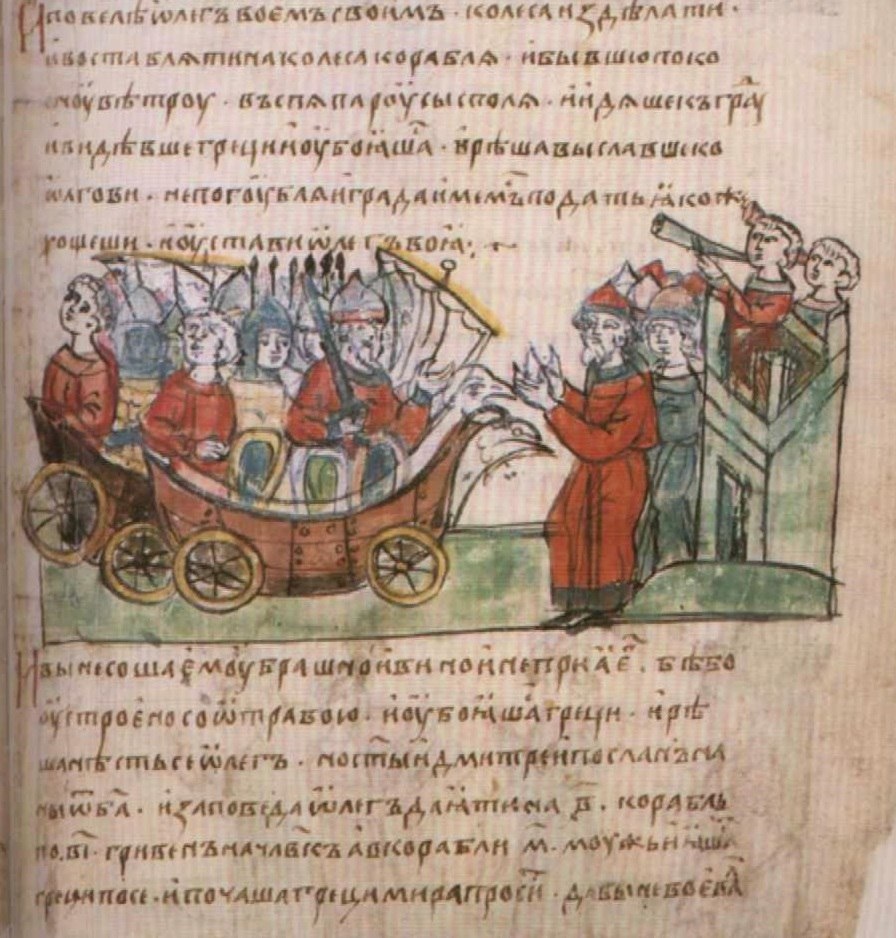 И повелѣ ѡлегъ воемъ своимъ · колеса издѣлати ·
и воставляти на колеса корабля · и бывшю поко
сноу вѣтроу · въспя пароусы с поля · и идяше къ градоу
и видѣвше греци и оубоӕшас̑ · и рѣша выславше ко
ѡлгови · не погоубляи града имемъ сѧ по дань ӕкоже
хощеши · и оустави ѡлегъ воӕ · ~
И вынесоша емоу брашно и вино и не приӕ е̑г · бѣ бо
оустроено со ѡтравою · и оубоӕшас̑ греци · и рѣ
ша нѣсть се ѡлегъ · но ст҃ыи дмитреи посланъ на
ны ѡт ба҃ · и заповѣда ѡлегъ даӕти на ·в҃· корабль
по ·ві҃· гривенъ на ч҃лвкъ а в корабли ·м҃· моужь и ӕшас̑
греци по се · и почаша греци мира просити · дабы не воевалъ